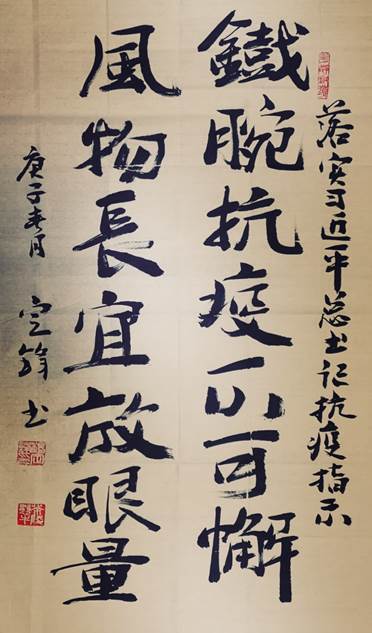 落实习近平总书记抗疫指示
鐵腕抗疫不可懈
風物長宜放眼量
庚子春月 定锋书